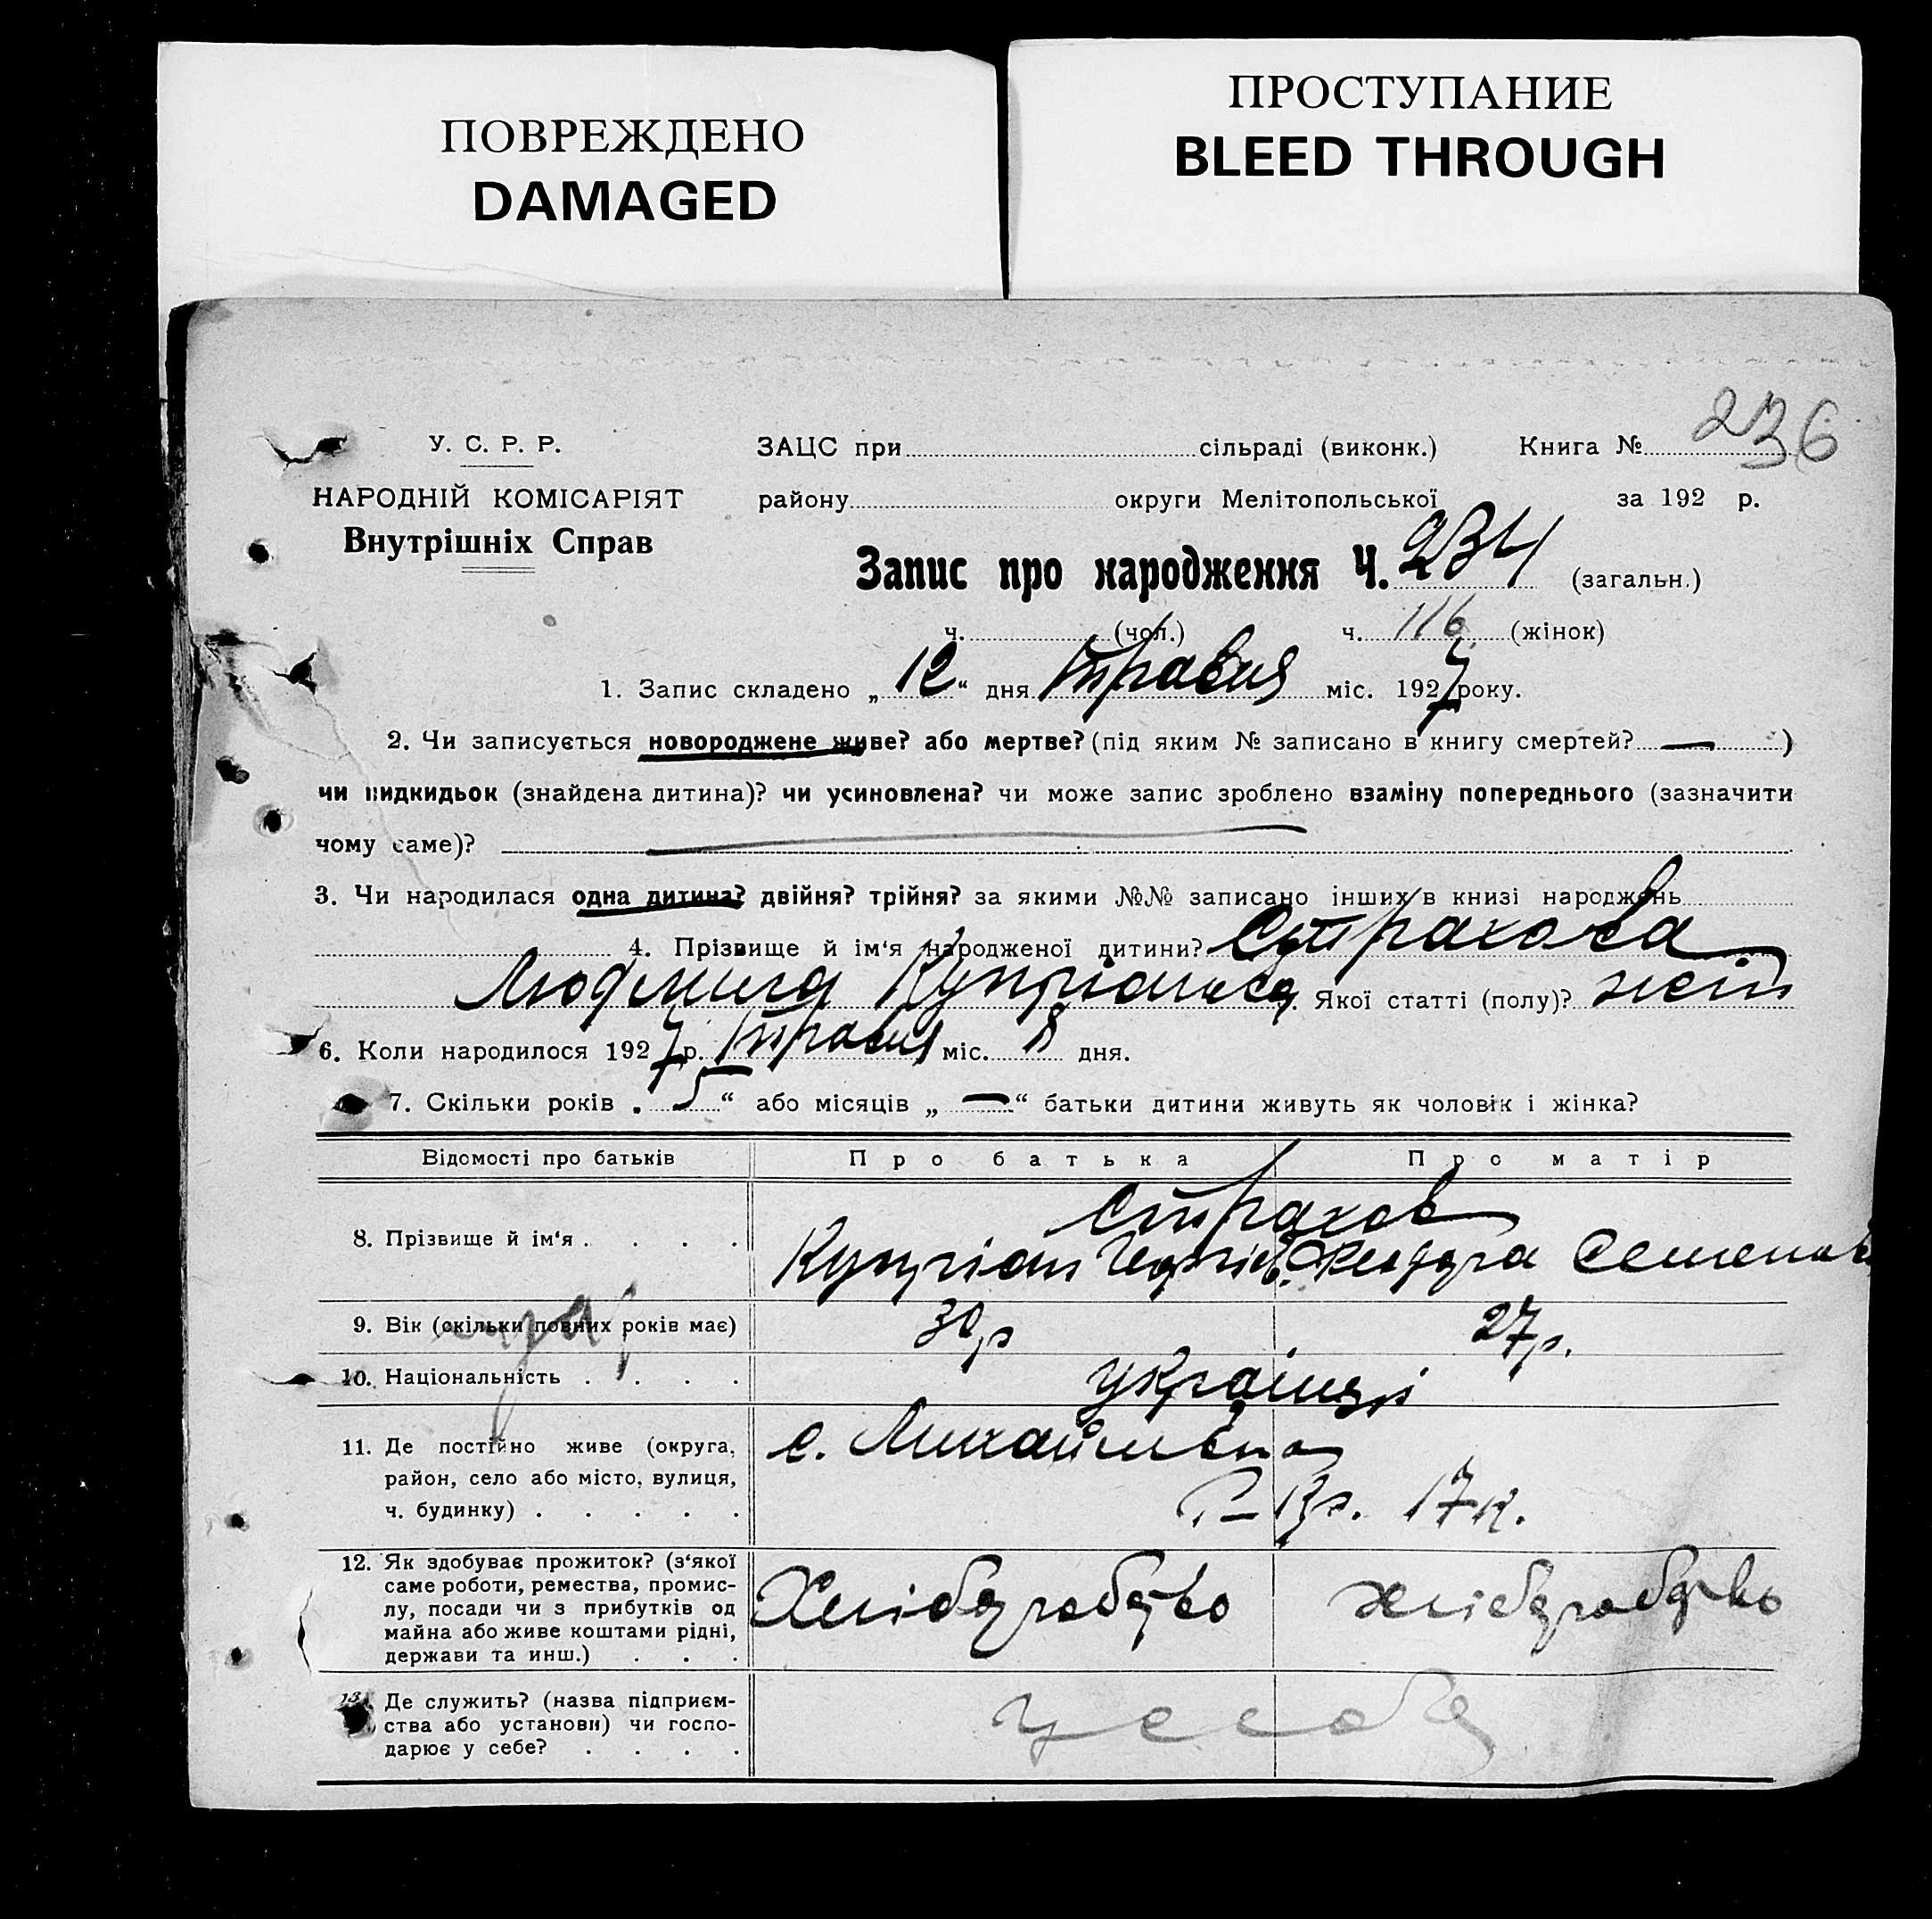 ПОВРЕЖДЕНО
DAMAGED
ПРОСТУПАНИЕ
BLEED THROUGH
236
У. С. Р. Р.
НАРОДНІЙ КОМІСАРІЯТ
Внутрішніх Справ
ЗАЦС при сільраді (виконк.) Книга №
району округи Мелітопольської за 192 р.
Запис про народження Ч. 234 (загальн.)
ч. (чол.) ч. 116 (жінок)
1. Запис складено „12“ дня травня міс. 1927 року.
2. Чи записується новороджене живе? або мертве? (під яким № записано в книгу смертей? —)
чи підкидьок (знайдена дитина)? чи усиновлена? чи може запис зроблено взаміну попереднього (зазначити
чому саме)?
3. Чи народилася одна дитина? двійня? трійня? за якими №№ записано інших в книзі народжень
4. Прізвище й ім‘я народженої дитини? Страхова
Людмила Купріанова. Якої статті (полу)? жін
6. Коли народилося 1927 р. травня міс. 8 дня.
7. Скільки років „5“ або місяців „—“ батьки дитини живуть як чоловік і жінка?
Відомості про батьків Про батька Про матір
Страхов
8. Прізвище й ім‘я . . . . Купріан Феодора Семенов
9. Вік (скільки повних років має) 30 р 27 р.
10. Національність . . . . українці
11. Де постійно живе (округа, с. Михайлівка
район, село або місто, вулиця,
ч. будинку) . . . . . 17 к.
12. Як здобуває прожиток? (з‘якої
саме роботи, ремества, промис-
лу, посади чи з прибутків од Хліборобство хліборобство
майна або живе коштами рідні,
держави та инш.) . . .
13. Де служить? (назва підприєм-
ства або установи) чи госпо- у себе
дарює у себе? . . . .